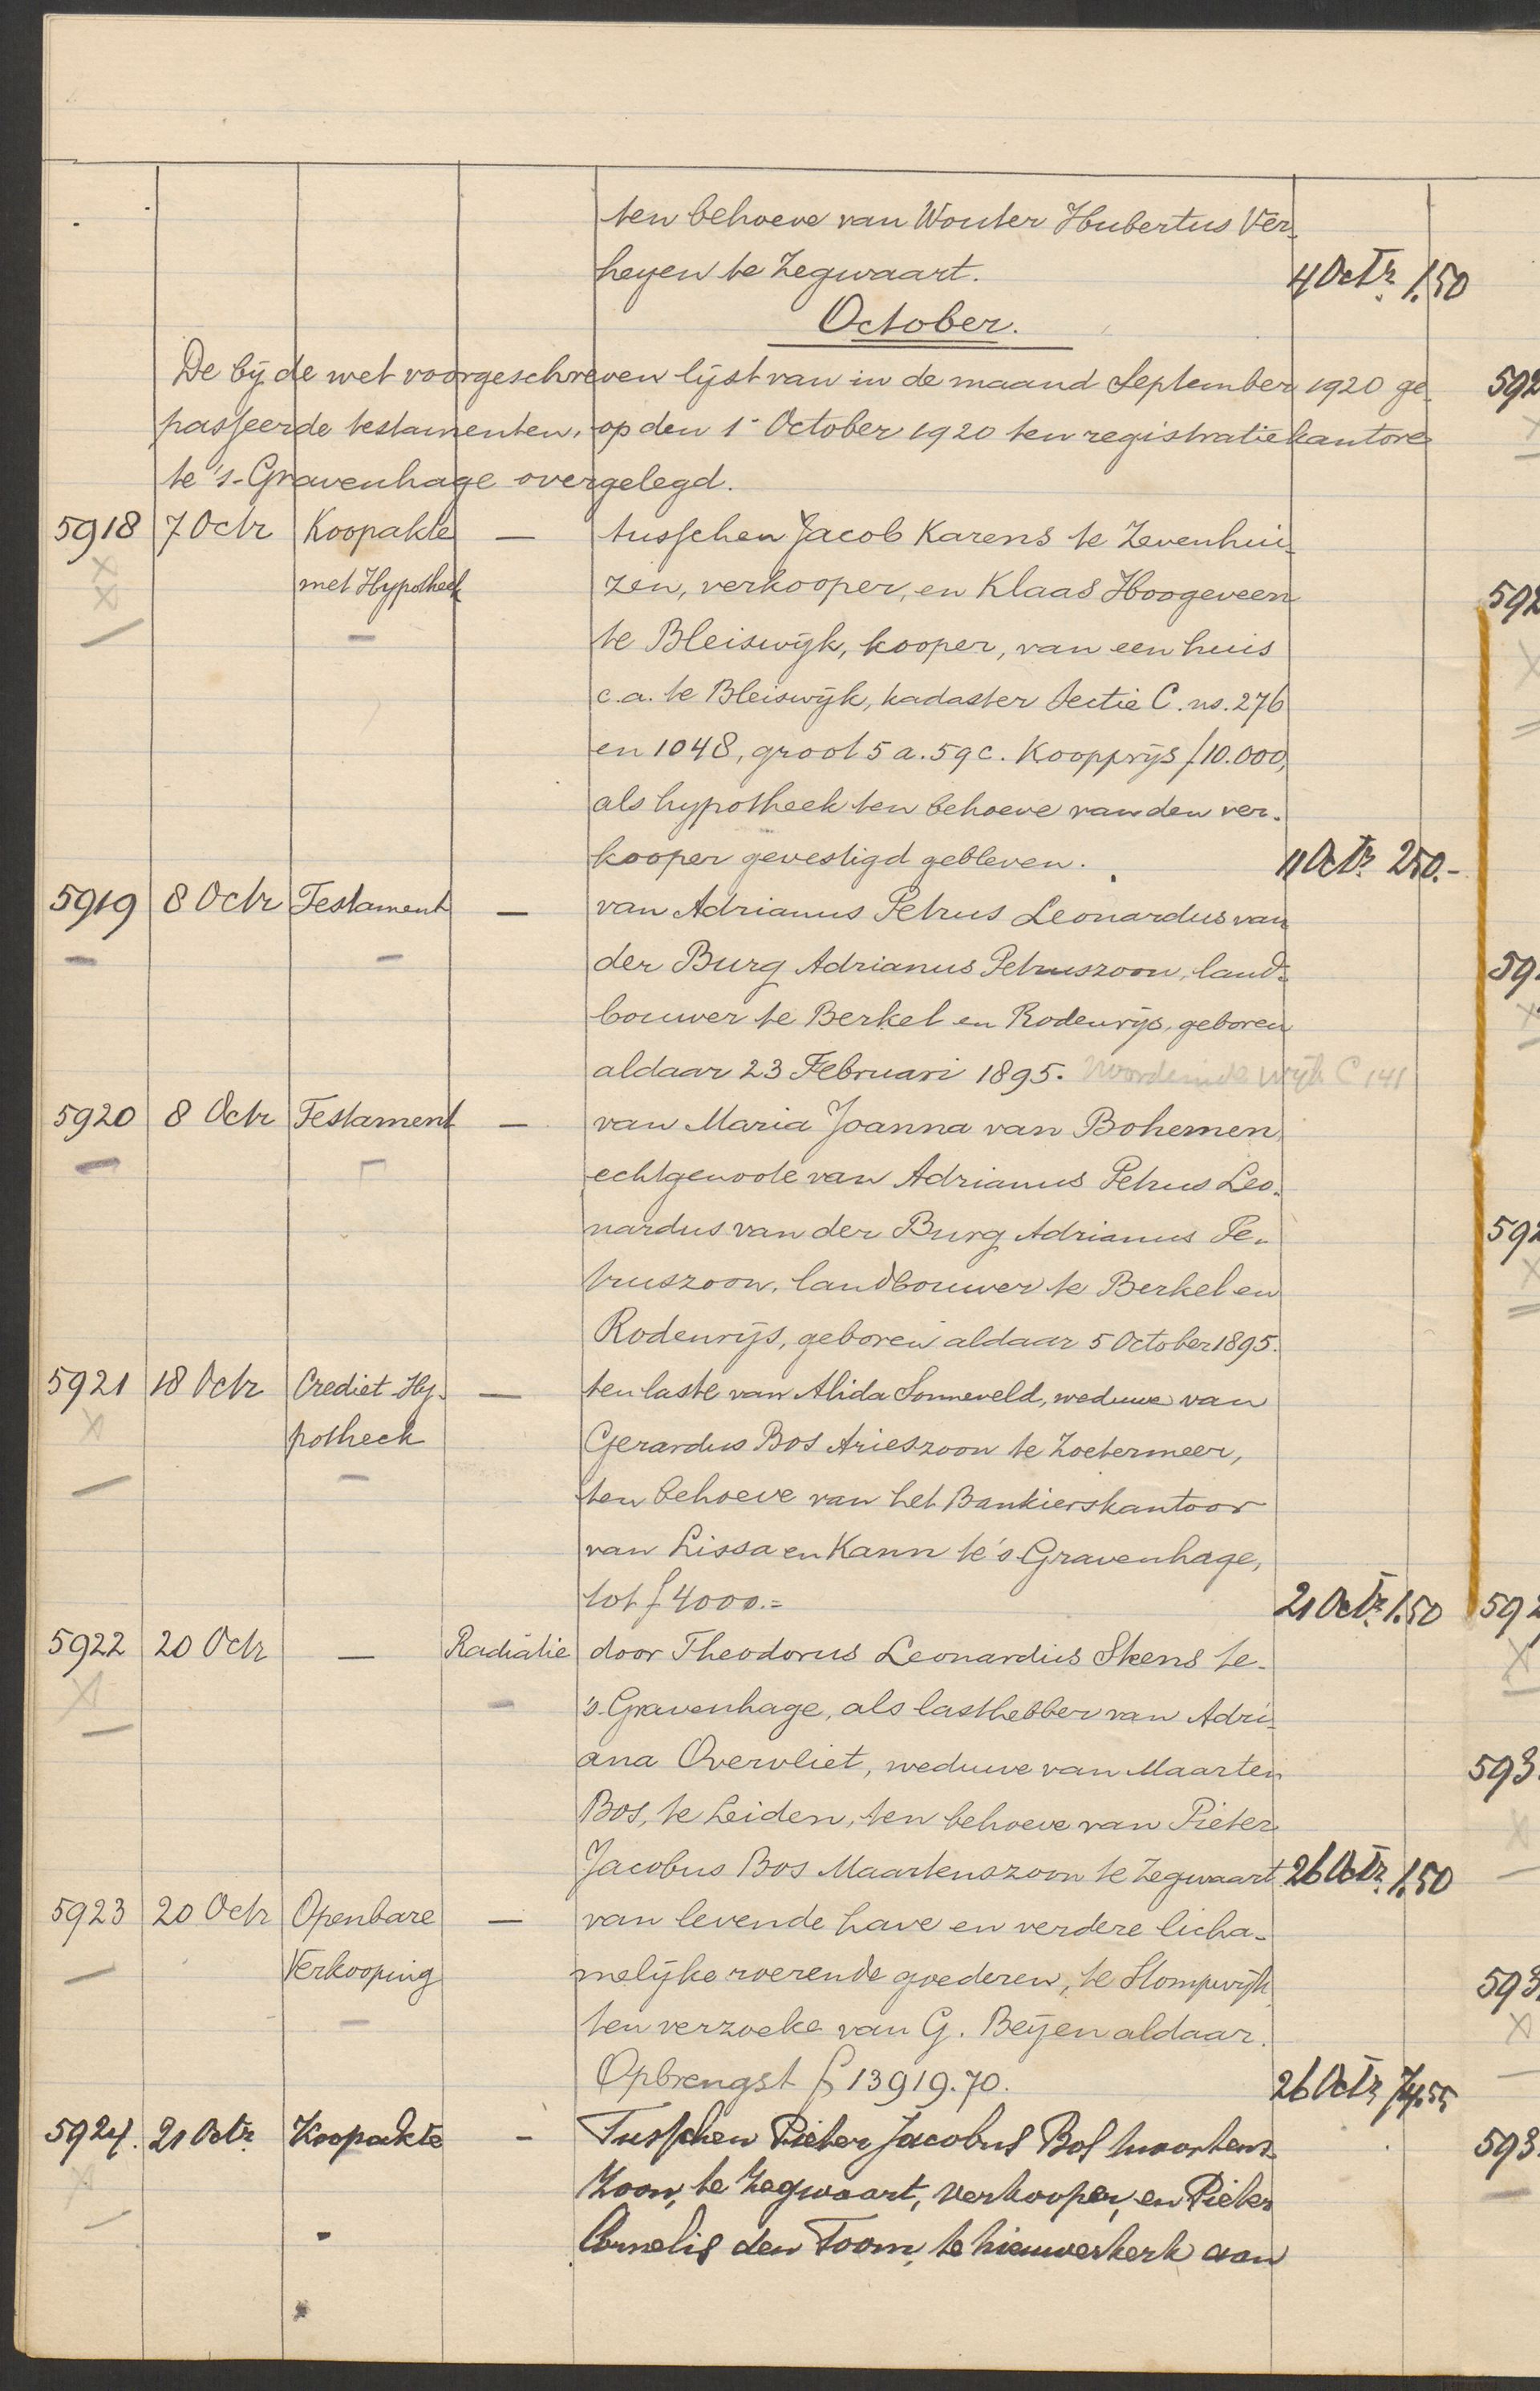 ten behoeve van Wouter Hubertus Ver-
heyen te Zegwaart. 4 Octr. 1.50
October.
De bij de wet voorgeschreven lijst van in de maand September 1920 ge-
passeerde testamenten, op den 1e October 1920 ten registratiekantore
te 's-Gravenhage overgelegd.
5918 7 Octr Koopakte — tusschen Jacob Karens te Zevenhui-
met Hypotheek zen, verkooper, en Klaas Hoogeveen
te Bleiswijk, kooper, van een huis
c.a. te Bleiswijk, kadaster Sectie C. ns. 276
en 1048, groot 5 a. 59 c. Koopprijs f 10.000,
als hypotheek ten behoeve van den ver-
kooper gevestigd gebleven. 11 Octr. 250.-
5919 8 Octr Testament — van Adrianus Petrus Leonardus van
der Burg Adrianus Petruszoon, land-
bouwer te Berkel en Rodenrijs, geboren
aldaar 23 Februari 1895. Noordeinde wijk C 141
5920 8 Octr Testament — van Maria Joanna van Bohemen,
echtgenoote van Adrianus Petrus Leo-
nardus van der Burg Adrianus Pe-
truszoon, landbouwer te Berkel en
Rodenrijs, geboren aldaar 5 October 1895.
5921 18 Octr Crediet-Hy- — ten laste van Alida Sonneveld, weduwe van
potheek Gerardus Bos Arieszoon te Zoetermeer,
ten behoeve van het Bankierskantoor
van Lissa en Kann te 's Gravenhage,
tot f 4000.= 21 Octr. 1.50
5922 20 Octr — Radiatie door Theodorus Leonardus Skens te-
's-Gravenhage, als lasthebber van Adri-
ana Overvliet, weduwe van Maarten
Bos, te Leiden, ten behoeve van Pieter
Jacobus Bos Maartenszoon te Zegwaart 26 Octr. 1.50
5923 20 Octr Openbare — van levende have en verdere licha-
Verkooping melijke roerende goederen, te Stompwijk
ten verzoeke van G. Beijen aldaar.
Opbrengst f 13919.70. 26 Octr
5924. 21 Octr. Koopakte - Tusschen Pieter Jacobus Bos Maartens-
zoon, te Zegwaart, verkooper, en Pieter
Cornelis den Toom, te Nieuwerkerk aan